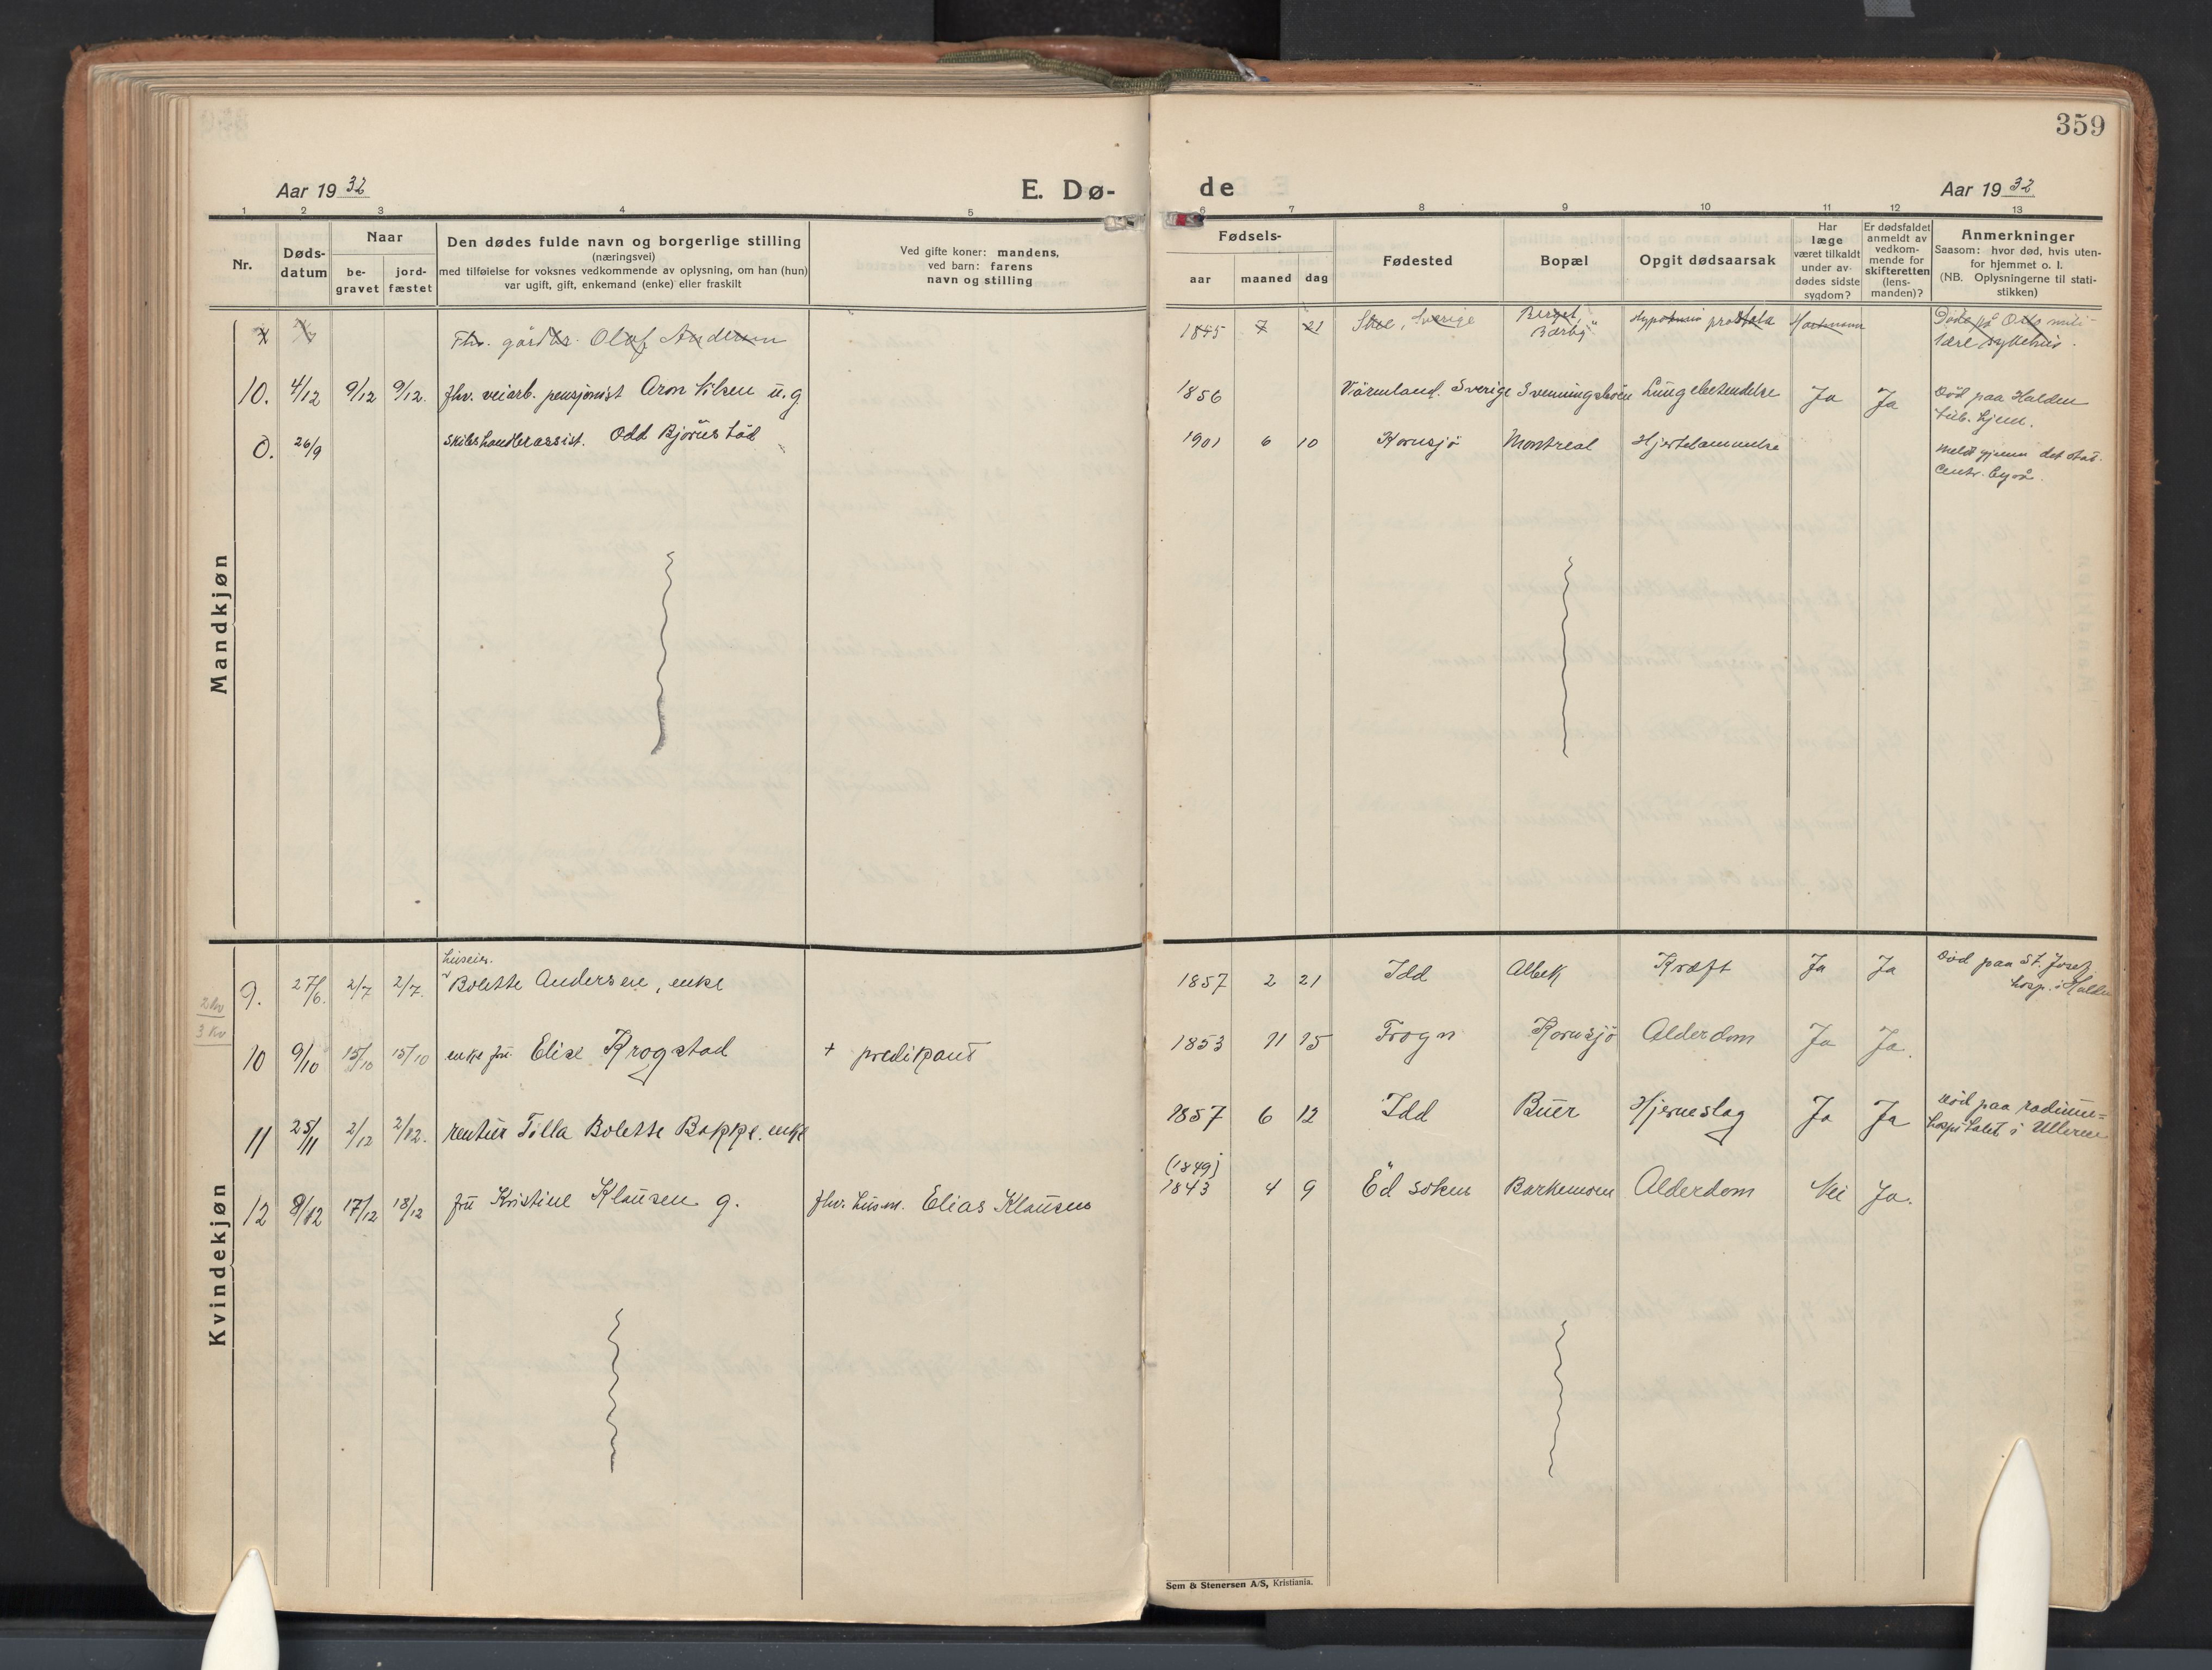 359
Aar 1932
E. Dø-
de
Aar 1932
1 2 3 4 5 6 7 8 9 10 11 12 13
Nr.
Døds-
datum
Naar
be-
gravet
jord-
fæstet
Den dødes fulde navn og borgerlige stilling
(næringsvei)
med tilføielse for voksnes vedkommende av oplysning, om han (hun)
var ugift, gift, enkemand (enke) eller fraskilt
Ved gifte koner: mandens,
ved barn: farens
navn og stilling
Fødsels-
aar maaned dag
Fødested
Bopæl
Opgit dødsaarsak
Har
læge
været tilkaldt
under av-
dødes sidste
sygdom?
Er dødsfaldet
anmeldt av
vedkom-
mende for
skifteretten
(lens-
manden)?
Anmerkninger
Saasom: hvor død, hvis uten-
for hjemmet o. l.
(NB. Oplysningerne til stati-
stikken)
Mandkjøn
Fhv. gårdbr. Olaf Andersen 1845 7 21 Skee, Sverige Berget, prostata
Bærby
10. 4/12 9/12 9/12. fhv. veiarb. pensjonist Aron Nilsen u.g 1856 Värmland. Sverige Svenningsböen Lungebetendelse Ja Ja Död paa Halden
tub. hjem.
0. 26/9 skibshandlerassist. Odd Bjørnstad 1901 6 10 Kornsjö Montreal Hjertelammelse Meldt gjennem det stat.
centr. byrå.
Kvindekjøn
huseier.
9. 27/6. 2/7 2/7. Bolette Andersen, enke 1857 2 21 Idd Albek Kræft Ja Ja Död paa St. Josef
hosp. i Halden
2 kv
3 Kv
10 9/10 15/10 15/10 enke fru Elise Krogstad + predikant 1853 11 15 Frogn Kornsjö Alderdom Ja Ja.
11 25/11 2/12 2/12. rentier Tilla Bolette Boppe. enke 1857 6 12 Idd Buer Hjerneslag Ja Ja död paa radium=
hospitalet i Ullern
(1849)
12 8/12 17/12 18/12 fru Kristine Klausen g. fhv. husm. Elias Klausen 1843 4 9 Ed soken Barkemoen Alderdom Nei Ja.
Sem & Stenersen A/S, Kristiania.